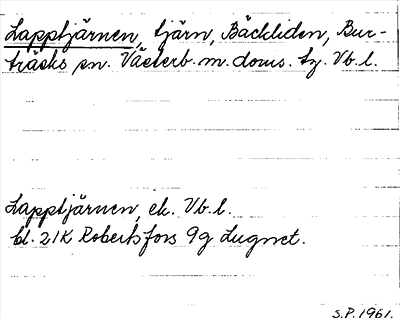 Lapptjärnen, tjärn, Bäckliden, Bur-
träsks sn. Västerb. m. doms. tg. Vb. l.
Lapptjärnen, ek. Vb. l.
bl. 21K Robertsfors 9g Lugnet.
S.P. 1961.